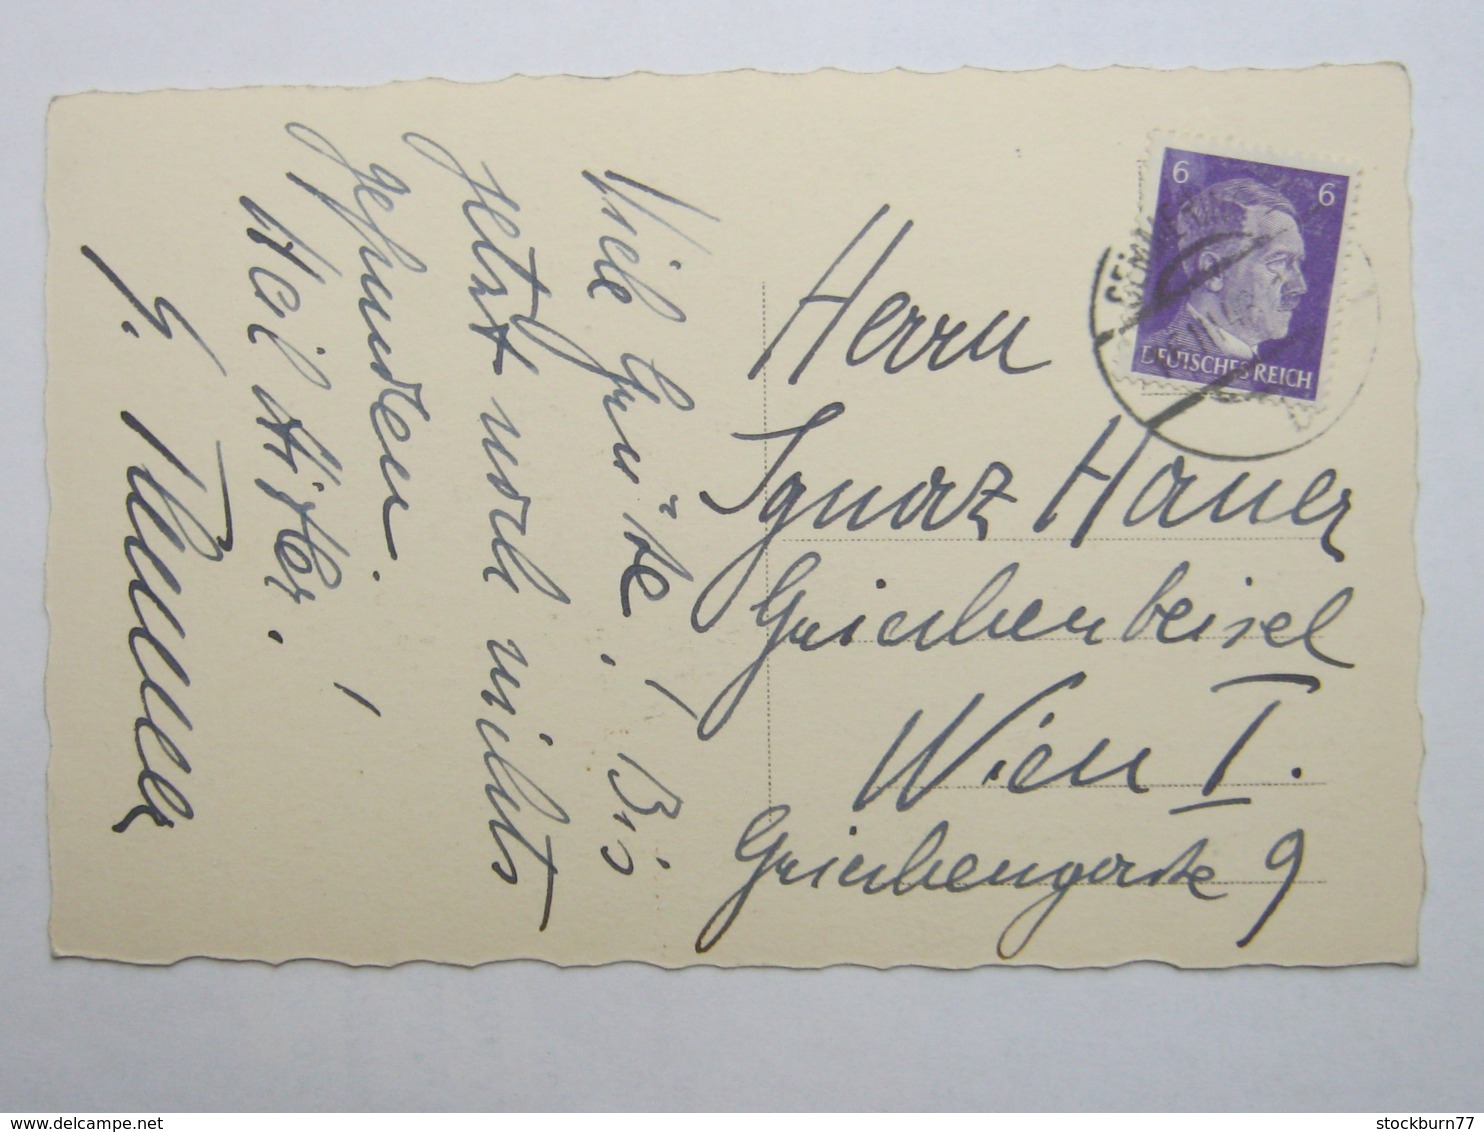 Viele Grüße. Bis
jetzt noch nichts
gefunden.
Heil Hitler!
Herrn
Ignaz Hauer
Griechenbeisel
Wien I.
Griechengasse 9
6 6
DEUTSCHES REICH
www.delcampe.net
stockburn77